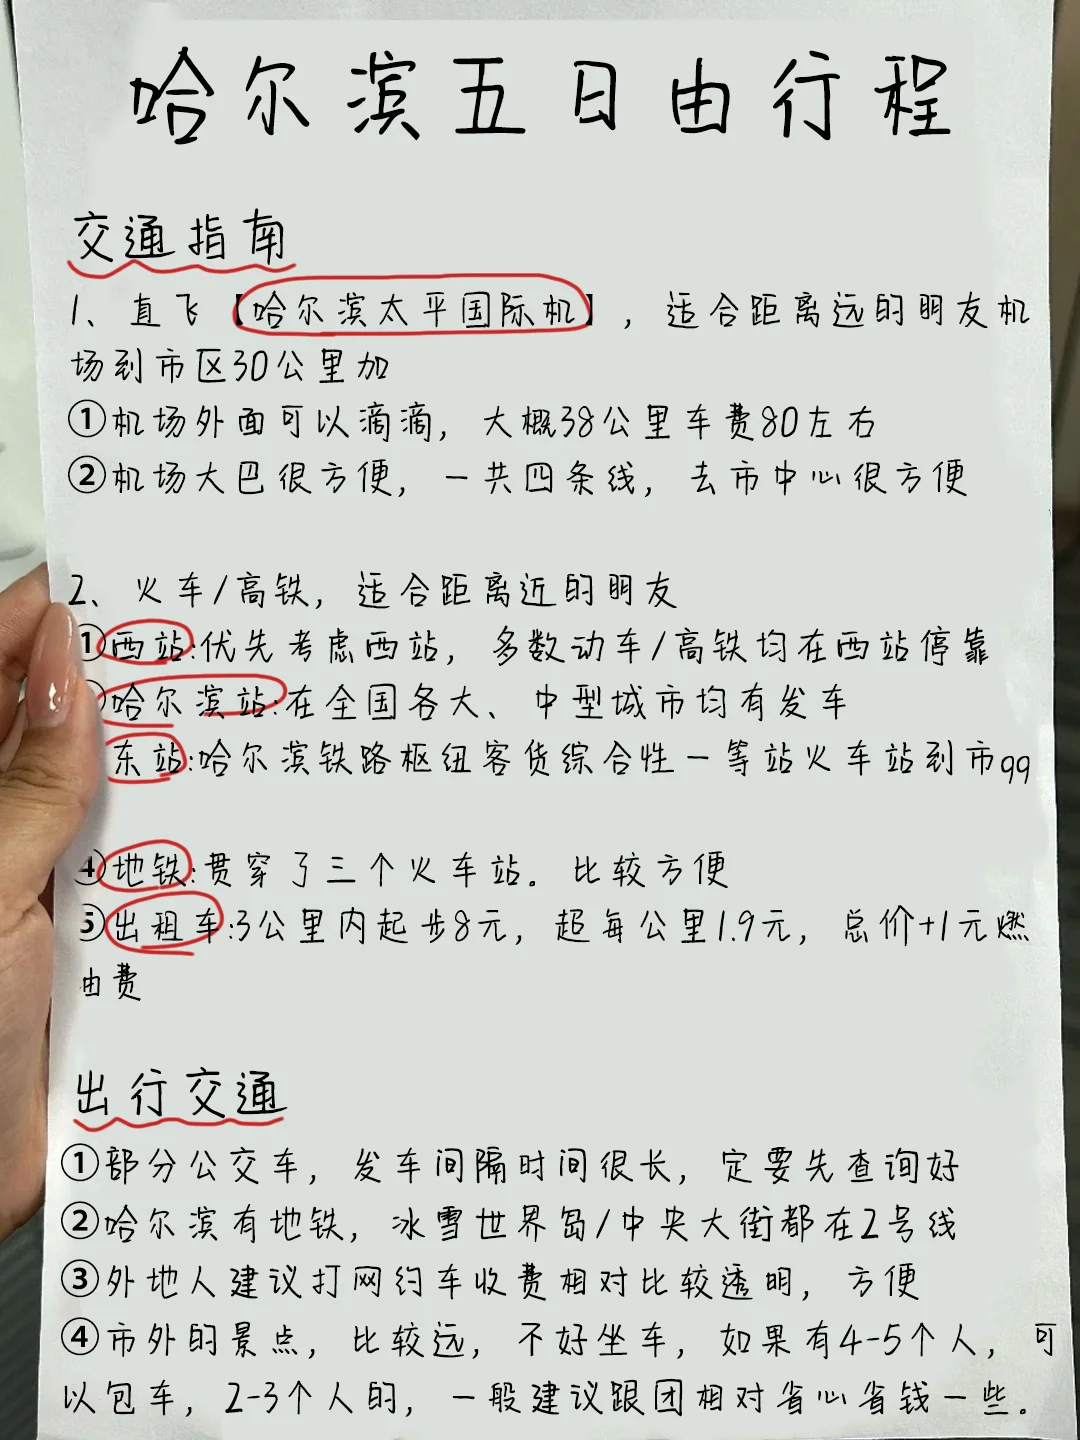 哈尔滨五日由行程
交通指南
1、直飞【哈尔滨太平国际机】，适合距离远的朋友机
场到市区30公里加
①机场外面可以滴滴，大概38公里车费80左右
②机场大巴很方便，一共四条线，去市中心很方便
2、火车/高铁，适合距离近的朋友
①西站:优先考虑西站，多数动车/高铁均在西站停靠
哈尔滨站:在全国各大、中型城市均有发车
东站:哈尔滨铁路枢纽客货综合性一等站火车站到市qq
④地铁:贯穿了三个火车站。比较方便
⑤出租车:3公里内起步8元，超每公里1.9元，总价+1元燃
由费
出行交通
①部分公交车，发车间隔时间很长，定要先查询好
②哈尔滨有地铁，冰雪世界岛/中央大街都在2号线
③外地人建议打网约车收费相对比较透明，方便
④市外的景点，比较远，不好坐车，如果有4-5个人，可
以包车，2-3个人的，一般建议跟团相对省心省钱一些。